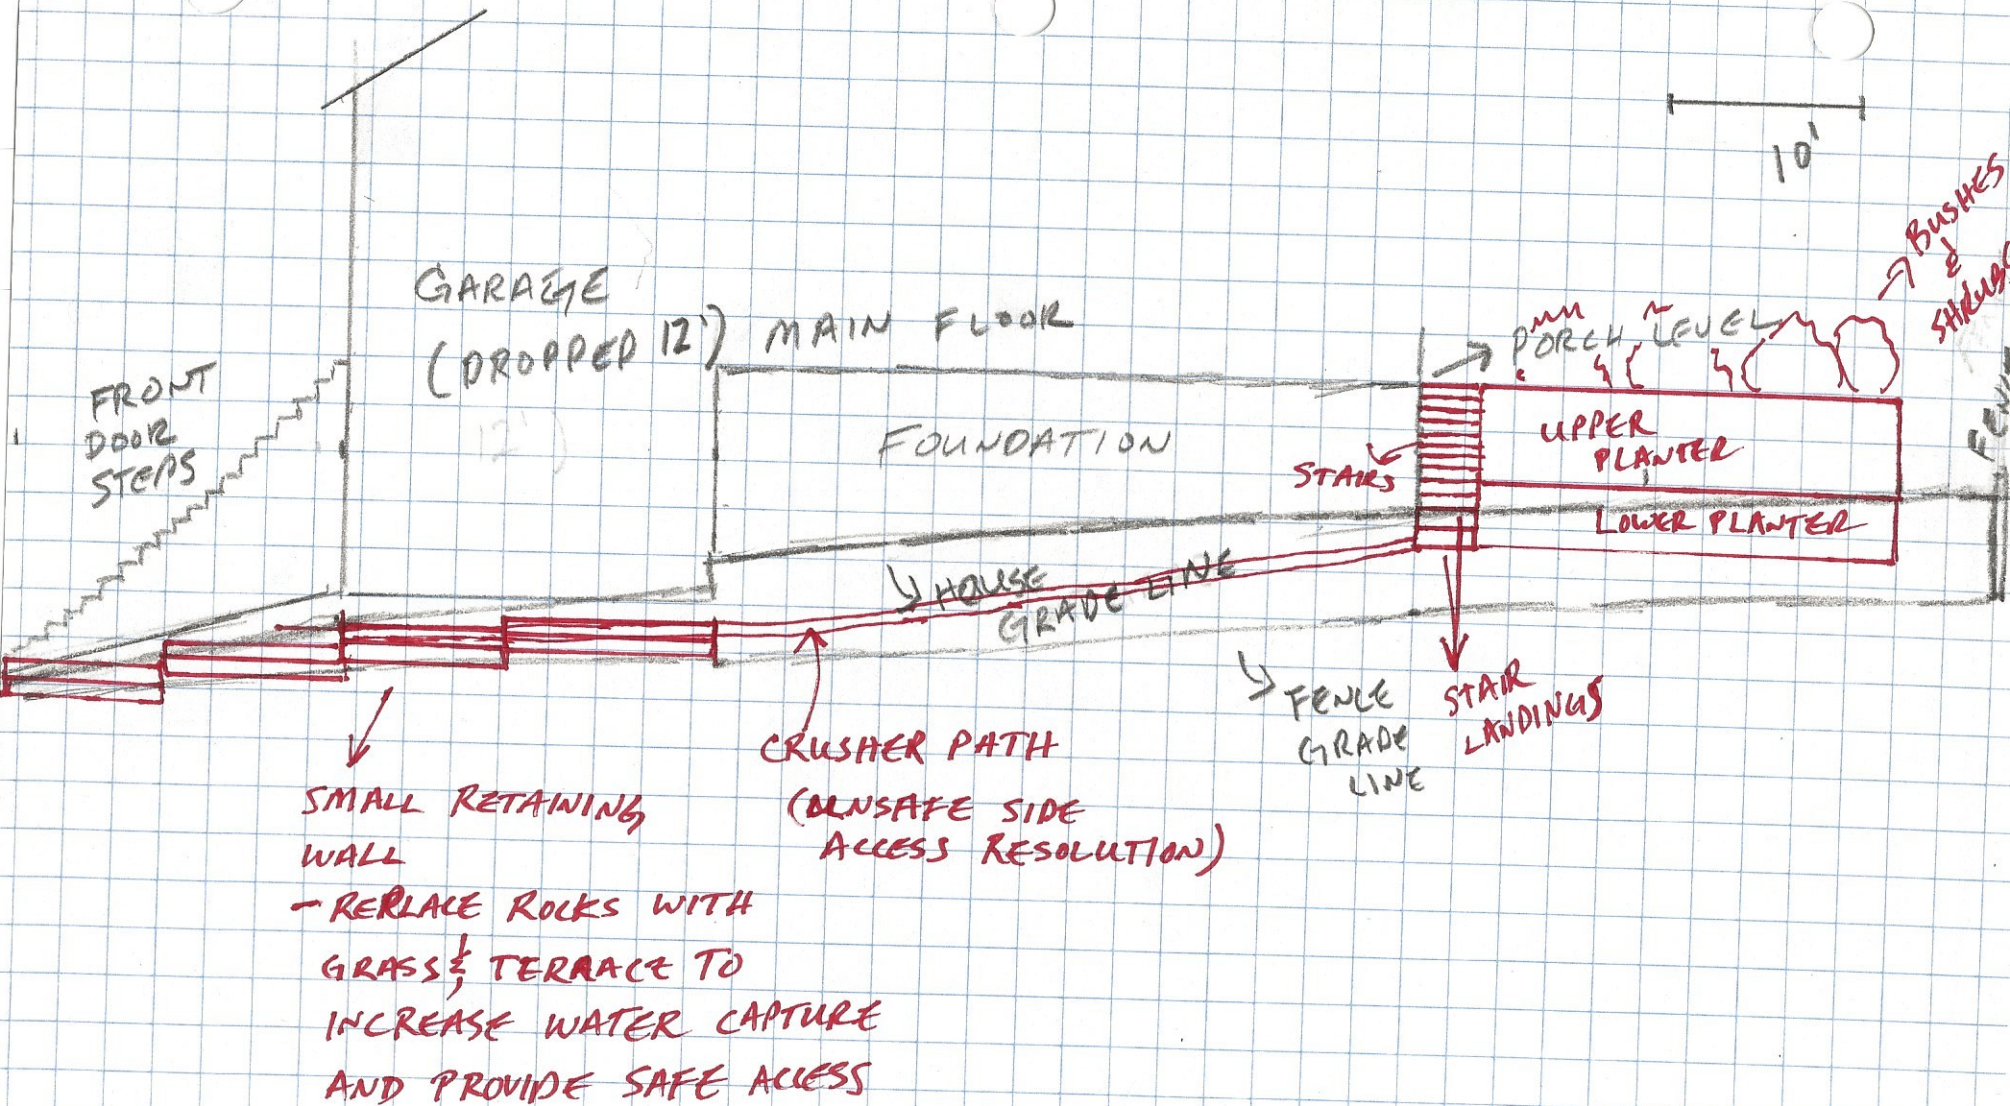 10'
BUSHES
&
SHRUBS
GARAGE
(DROPPED 12')
MAIN FLOOR
PORCH LEVEL
FRONT
DOOR
STEPS
12')
FOUNDATION
STAIRS
UPPER
PLANTER
LOWER PLANTER
HOUSE
GRADE LINE
FENCE
GRADE
LINE
STAIR
LANDINGS
CRUSHER PATH
(UNSAFE SIDE
ACCESS RESOLUTION)
SMALL RETAINING
WALL
- REPLACE ROCKS WITH
GRASS & TERRACE TO
INCREASE WATER CAPTURE
AND PROVIDE SAFE ACCESS